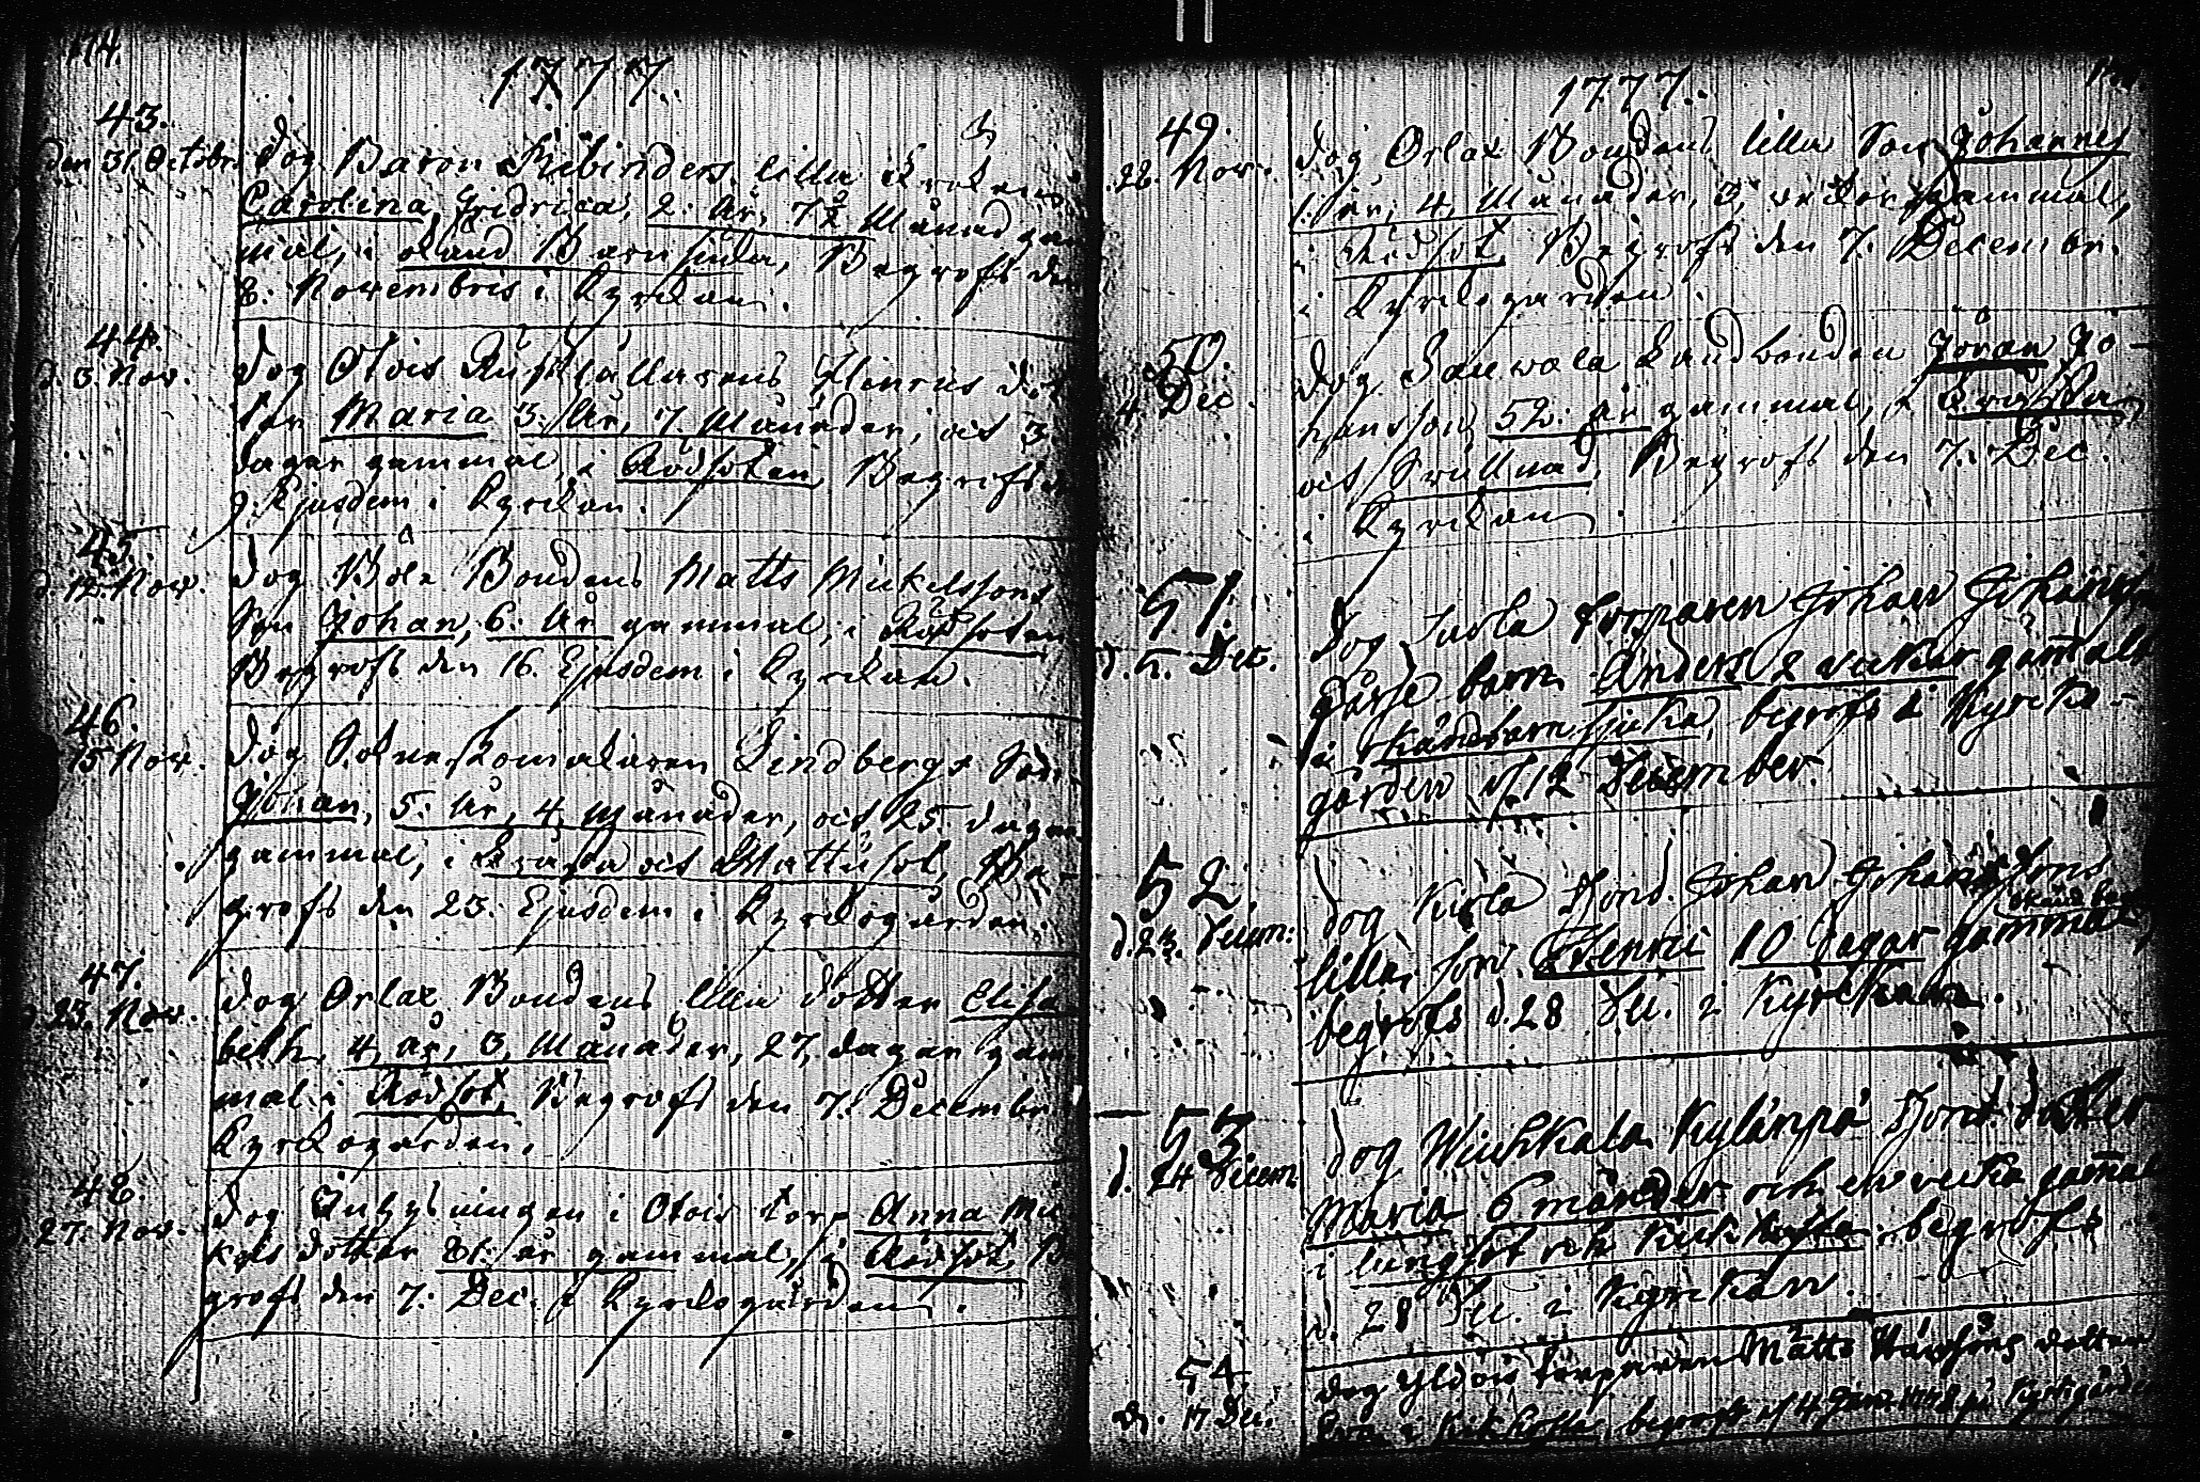 174.
1777.
43.
den 31 Octobr. Dog Baron Rebinders lilla Fröken
Carolina Fridrica, 2: År, 7½ Månad gam
mal, i okänd Barnsjuka, Begrofs den
8. Novembris i Kyrckan.
44.
d. 3. Nov. Dog Otois Rusthållarens Henrics dot
ter Maria 3: År, 7. Månader, oct 3
dagar gammal, i Rödsoten Begrofs d.
9. Ejusdem i Kyrckan.
45.
d. 12. Nov. Dog Böle Bondens Matts Mickelssons
Son Johan, 6: År gammal, i Rödsoten
Begrofs den 16. Ejusdem i Kyrckan.
46.
15 Nov. Dog Sockneskomakaren Lindbergs Son
Johan, 5: År, 4 Månader, oct 25. dagar
gammal, i oct Be-
grofs den 23. Ejusdem i Kyrckogården.
47.
23. Nov. Dog Orlax Bondens lilla dotter Elisa
beth, 4, år, 3, Månader, 27, dagar gam
mal i Rödsot, Begrofs den 7. Decembr.
Kyrckogården.
48.
27. Nov. Dog Inhysningen i Otois torp Anna Mic
kels dotter 81: år gammal, i Rödsot, Be
grofs den 7: Dec. i Kyrckogården.
1777.
49.
28. Nov. Dog Orlax Bondens lilla Son Johannes
1: år, 4, Månader, 3, veckor gammal,
i Rödsot, Begrofs den 7. Decembr.
i Kyrckogården.
50.
4. Dec Dog Landbonden Jöran Jo-
hansson 52: år gammal, i Bröst
oct Svullnad, Begrofs den 7. Dec.
i Kyrckan.
51.
d. 5. Dec. Dog torparen Johan Johansso
barn Anders 2 veckor gam̄alt
i okändbarnsjuka, begrofs i Kyrcko-
gården d 12 December.
52.
d. 23. Decem: Dog Bond. Johan Johanssons
okänd bar
lilla son Henric 10 dagar gammal,
begrofs d. 28 Dec. i Kyrckan.
53
d. 24 Decem Dog Kylänpä Bond. dotter
Maria 6 månader och en vecka gam̄al
i lungsot och Kikhosta. begrofs
d. 28 Dec. i Kyrckan.
54
d. 17 Dec. Dog torparen Matts dotter
i Kikhosta, begrofs d 4 Janu. 1778 på Kyrkgården